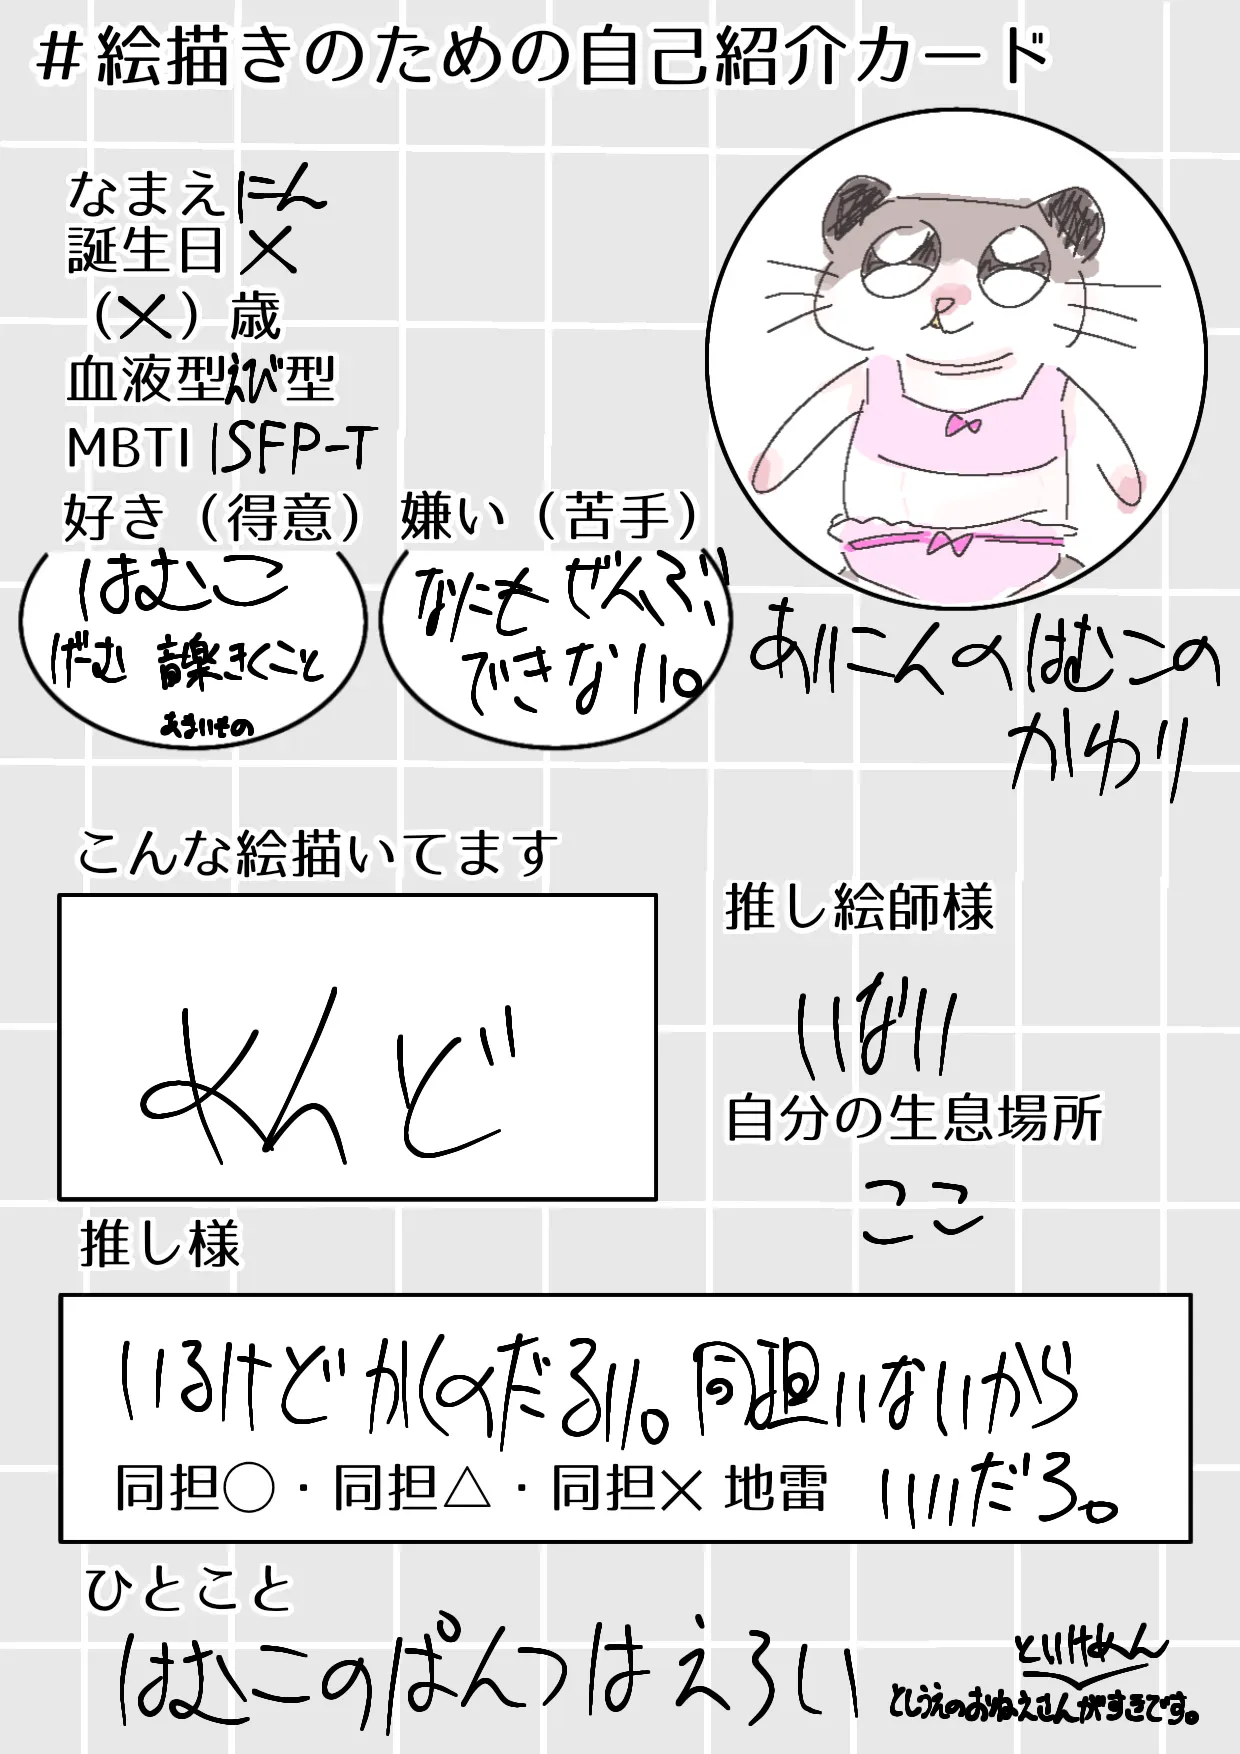 #絵描きのための自己紹介カード
なまえ にん
誕生日 ×
（×）歳
血液型 えび型
MBTI ISFP-T
好き（得意）
はむこ
げーむ 音楽きくこと
あまいもの
嫌い（苦手）
なにもぜんぶ
できない。
ありにんのはむこの
かわり
こんな絵描いてます
めんど
推し絵師様
いない
自分の生息場所
ここ
推し様
いるけどかくのだるい。同担いないから
いいだろ。
同担○・同担△・同担× 地雷
ひとこと
はむこのぱんつはえろい
といけめん
としうえのおねえさんがすきです。